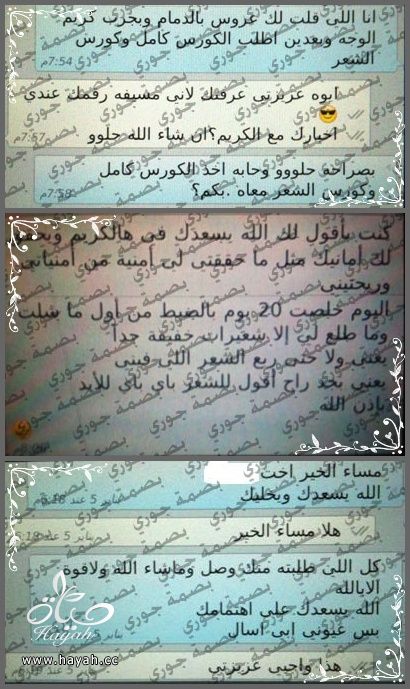 انا اللي قلت لك عروس بالدمام وبجرب كريم
الوجه وبعدين اطلب الكورس كامل وكورس
الشعر
7:54م
ايوه عزيزتي عرفتك لانى مسيفه رقمك عندي
😎
اخبارك مع الكريم؟ان شاء الله حلوو
7:57م
بصراحه حلووو وحابه اخذ الكورس كامل
وكورس الشعر معاه .بكم؟
7:58م
كنت بأقول لك الله يسعدك في هالكريم
لك أمانيك مثل ما حققتي لي أمنية من أمنياتي
وريحتيني
اليوم خلصت 20 يوم بالضبط من أول ما شلت
وما طلع لي إلا شعيرات خفيفة جداً
يعني ولا حتى ربع الشعر اللي فيني
يعني بجد راح أقول للشعر باي باي للأبد
بإذن الله
مساء الخير اخت
الله يسعدك ويخليك
يناير 5 عند 5:18م
هلا مساء الخير
يناير 5 عند
كل اللي طلبته منك وصل وماشاء الله ولاقوة
الابالله
الله يسعدك على اهتمامك
بس عيوني ابي اسال
هذا واجبي عزيزتي
بصمة جوري
حياة
Hayah
www.hayah.cc